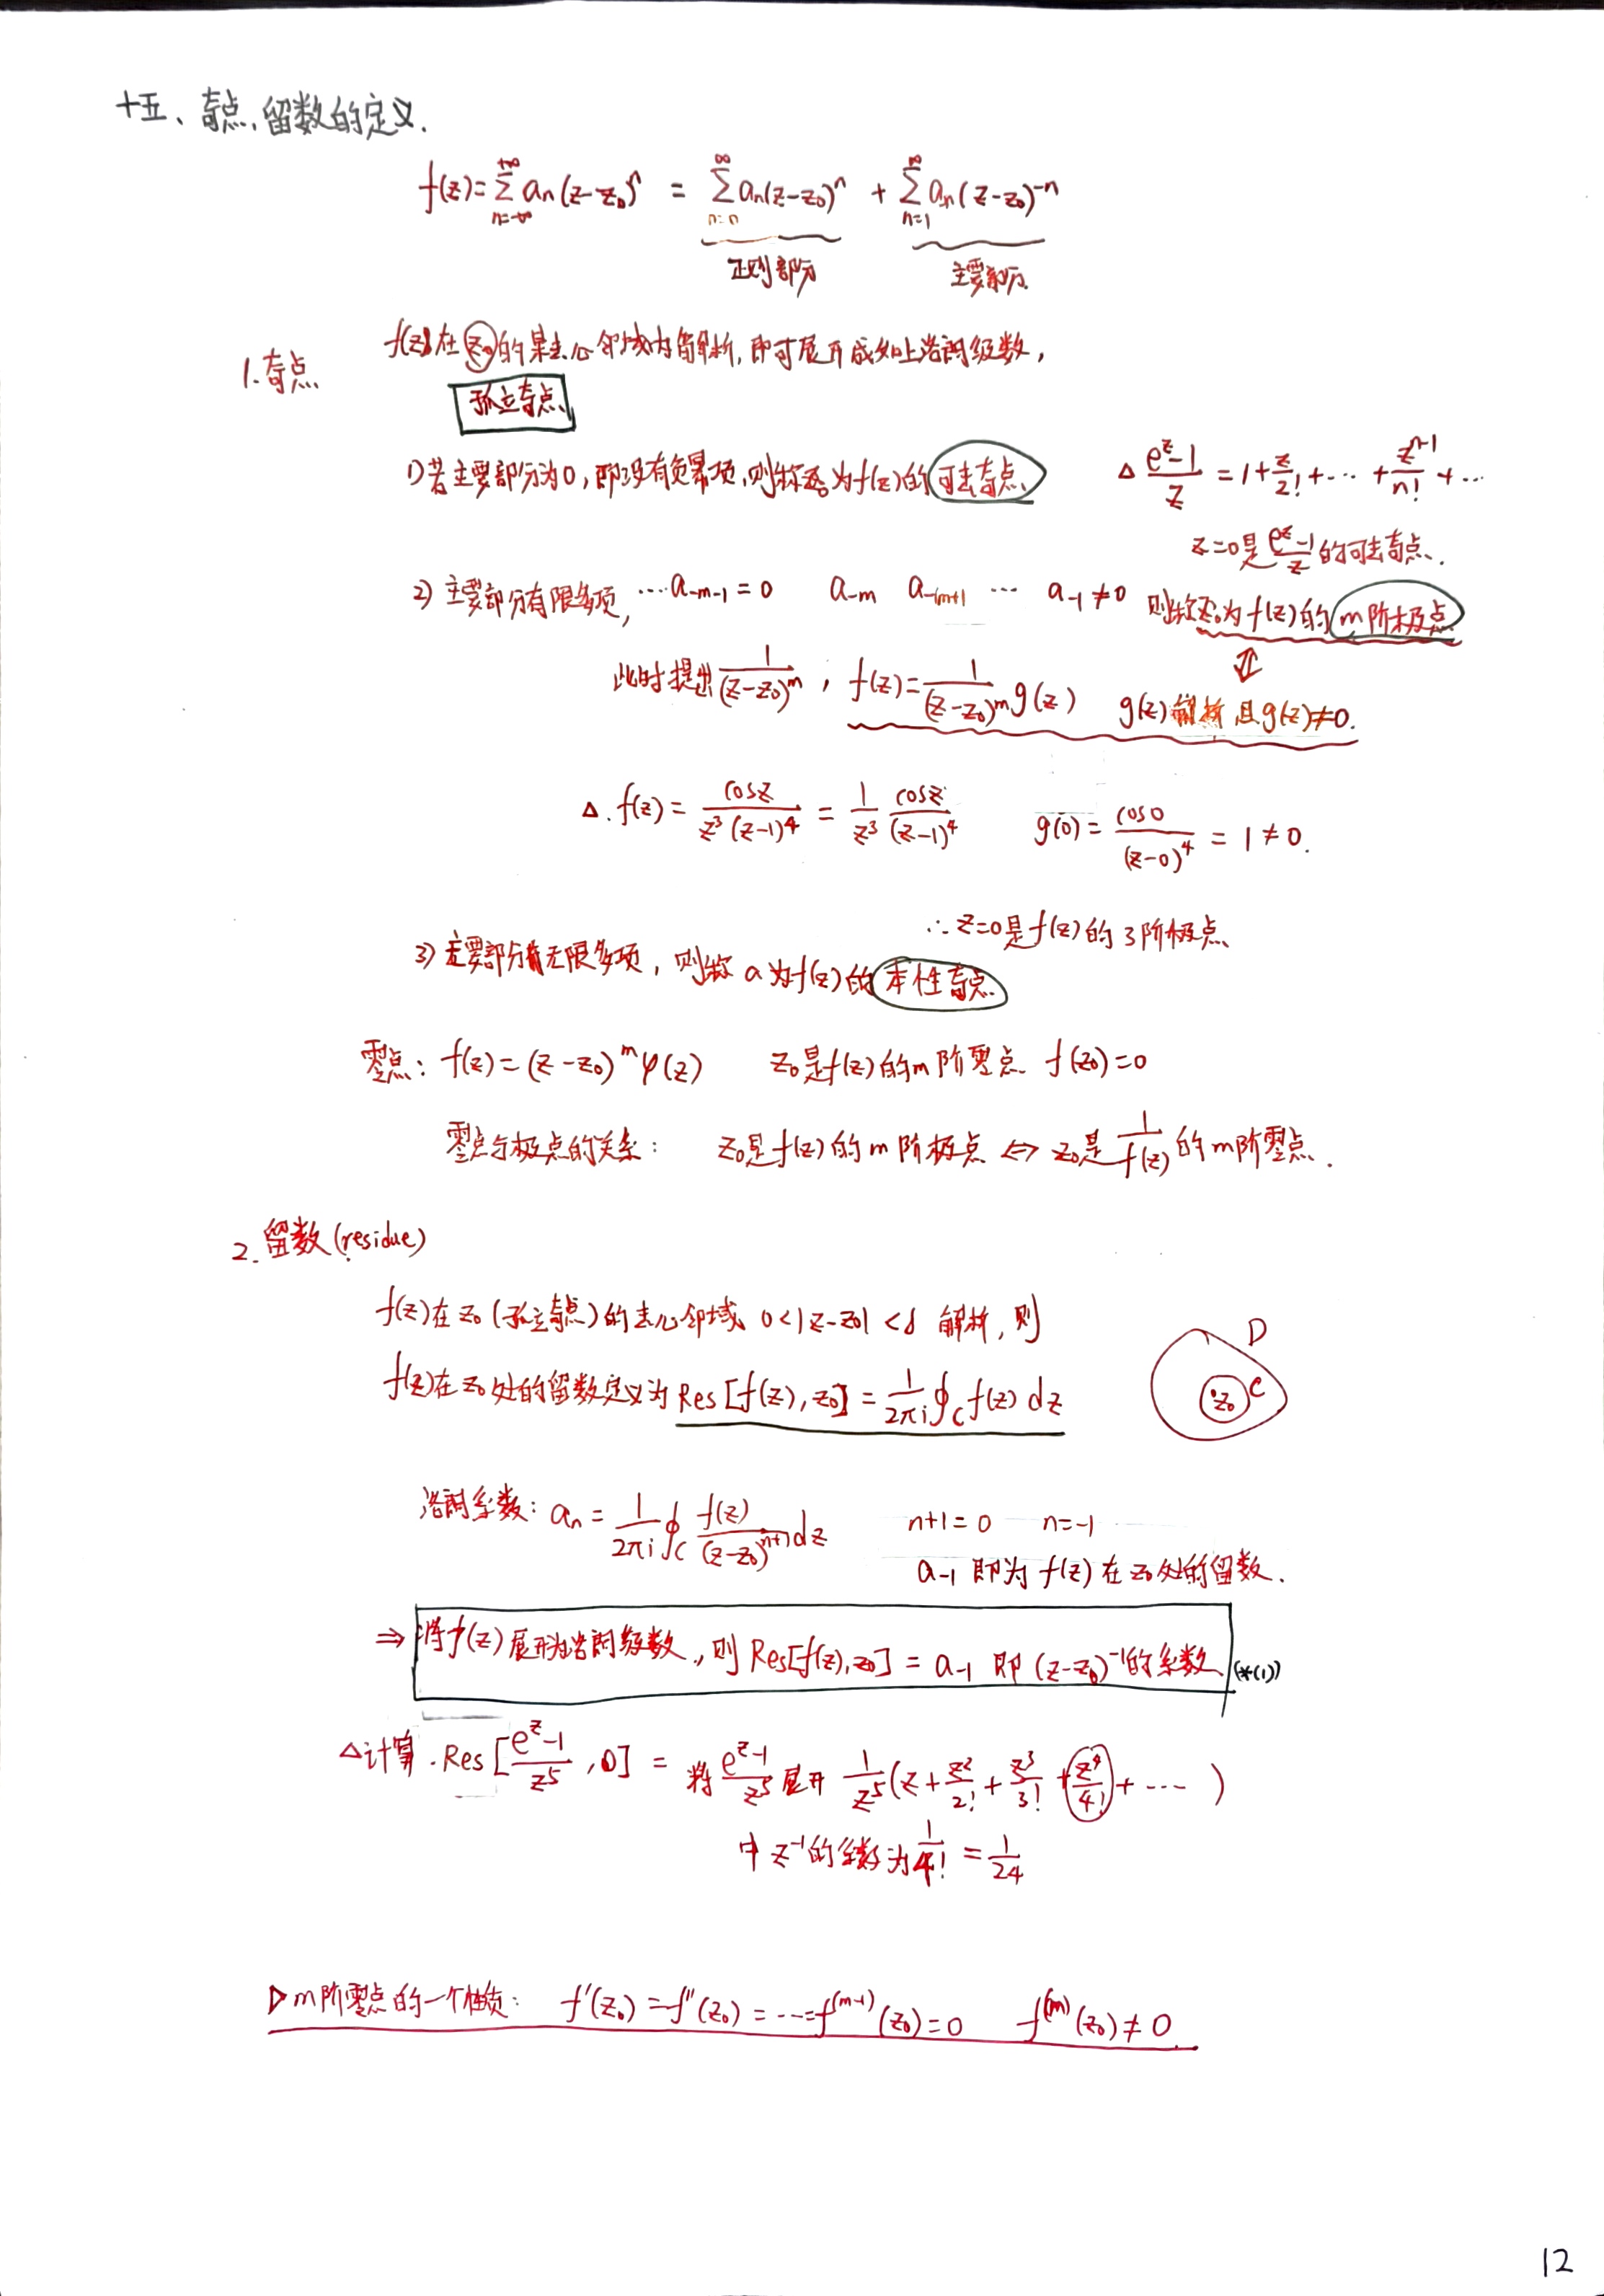 十五、奇点、留数的定义.
f(z)=∑_{n=-∞}^{+∞} a_n(z-z₀)^n = ∑_{n=0}^{∞} a_n(z-z₀)^n + ∑_{n=1}^{∞} a_n(z-z₀)^{-n}
正则部分 主要部分.
1.奇点 f(z)在z₀的某去心邻域内解析,即可展开成如上洛朗级数,
孤立奇点
1)若主要部分为0,即没有负幂项,则称z₀为f(z)的可去奇点 △ (e^z-1)/z = 1+z/2!+⋯+z^{n-1}/n!+⋯
z=0是(e^z-1)/z的可去奇点.
2)主要部分有限多项,⋯a_{-m-1}=0 a_{-m} a_{-m+1} ⋯ a_{-1}≠0 则称z₀为f(z)的m阶极点
⇕
此时提出1/(z-z₀)^m, f(z)=1/(z-z₀)^m g(z) g(z)解析且g(z)≠0.
△. f(z)=cosz/(z³(z-1)⁴) = 1/z³ cosz/(z-1)⁴ g(0)=cos0/(z-0)⁴=1≠0.
∴z=0是f(z)的3阶极点
3)主要部分有无限多项,则称a为f(z)的本性奇点
零点: f(z)=(z-z₀)^m φ(z) z₀是f(z)的m阶零点 f(z₀)=0
零点与极点的关系: z₀是f(z)的m阶极点⇔z₀是1/f(z)的m阶零点.
2.留数(residue)
f(z)在z₀(孤立奇点)的去心邻域 0<|z-z₀|<δ 解析,则
f(z)在z₀处的留数定义为Res[f(z),z₀]=1/(2πi)∮_C f(z)dz
D
z₀ C
洛朗系数: a_n=1/(2πi)∮_C f(z)/(z-z₀)^{n+1}dz n+1=0 n=-1
a_{-1}即为f(z)在z₀处的留数.
⇒ 将f(z)展开为洛朗级数,则Res[f(z),z₀]=a_{-1}即(z-z₀)^{-1}的系数 (*(1))
△计算.Res[(e^z-1)/z⁵,0] = 将(e^z-1)/z⁵展开 1/z⁵(z+z²/2!+z³/3!+z⁴/4!+⋯)
中z^{-1}的系数为1/4!=1/24
▷m阶零点的一个性质: f'(z₀)=f''(z₀)=⋯=f^{(m-1)}(z₀)=0 f^{(m)}(z₀)≠0
12